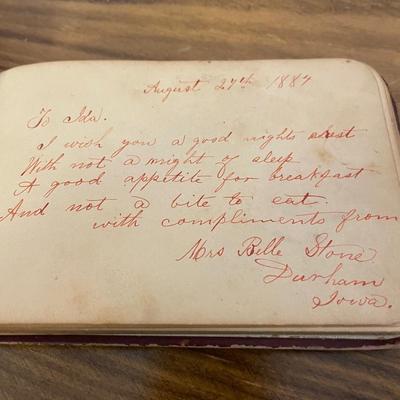 August 27th 1887
To Ida.
I wish you a good nights rest
With not a might of sleep
A good appetite for breakfast
And not a bite to eat.
with compliments from
Mrs Belle Stone
Durham
Iowa.